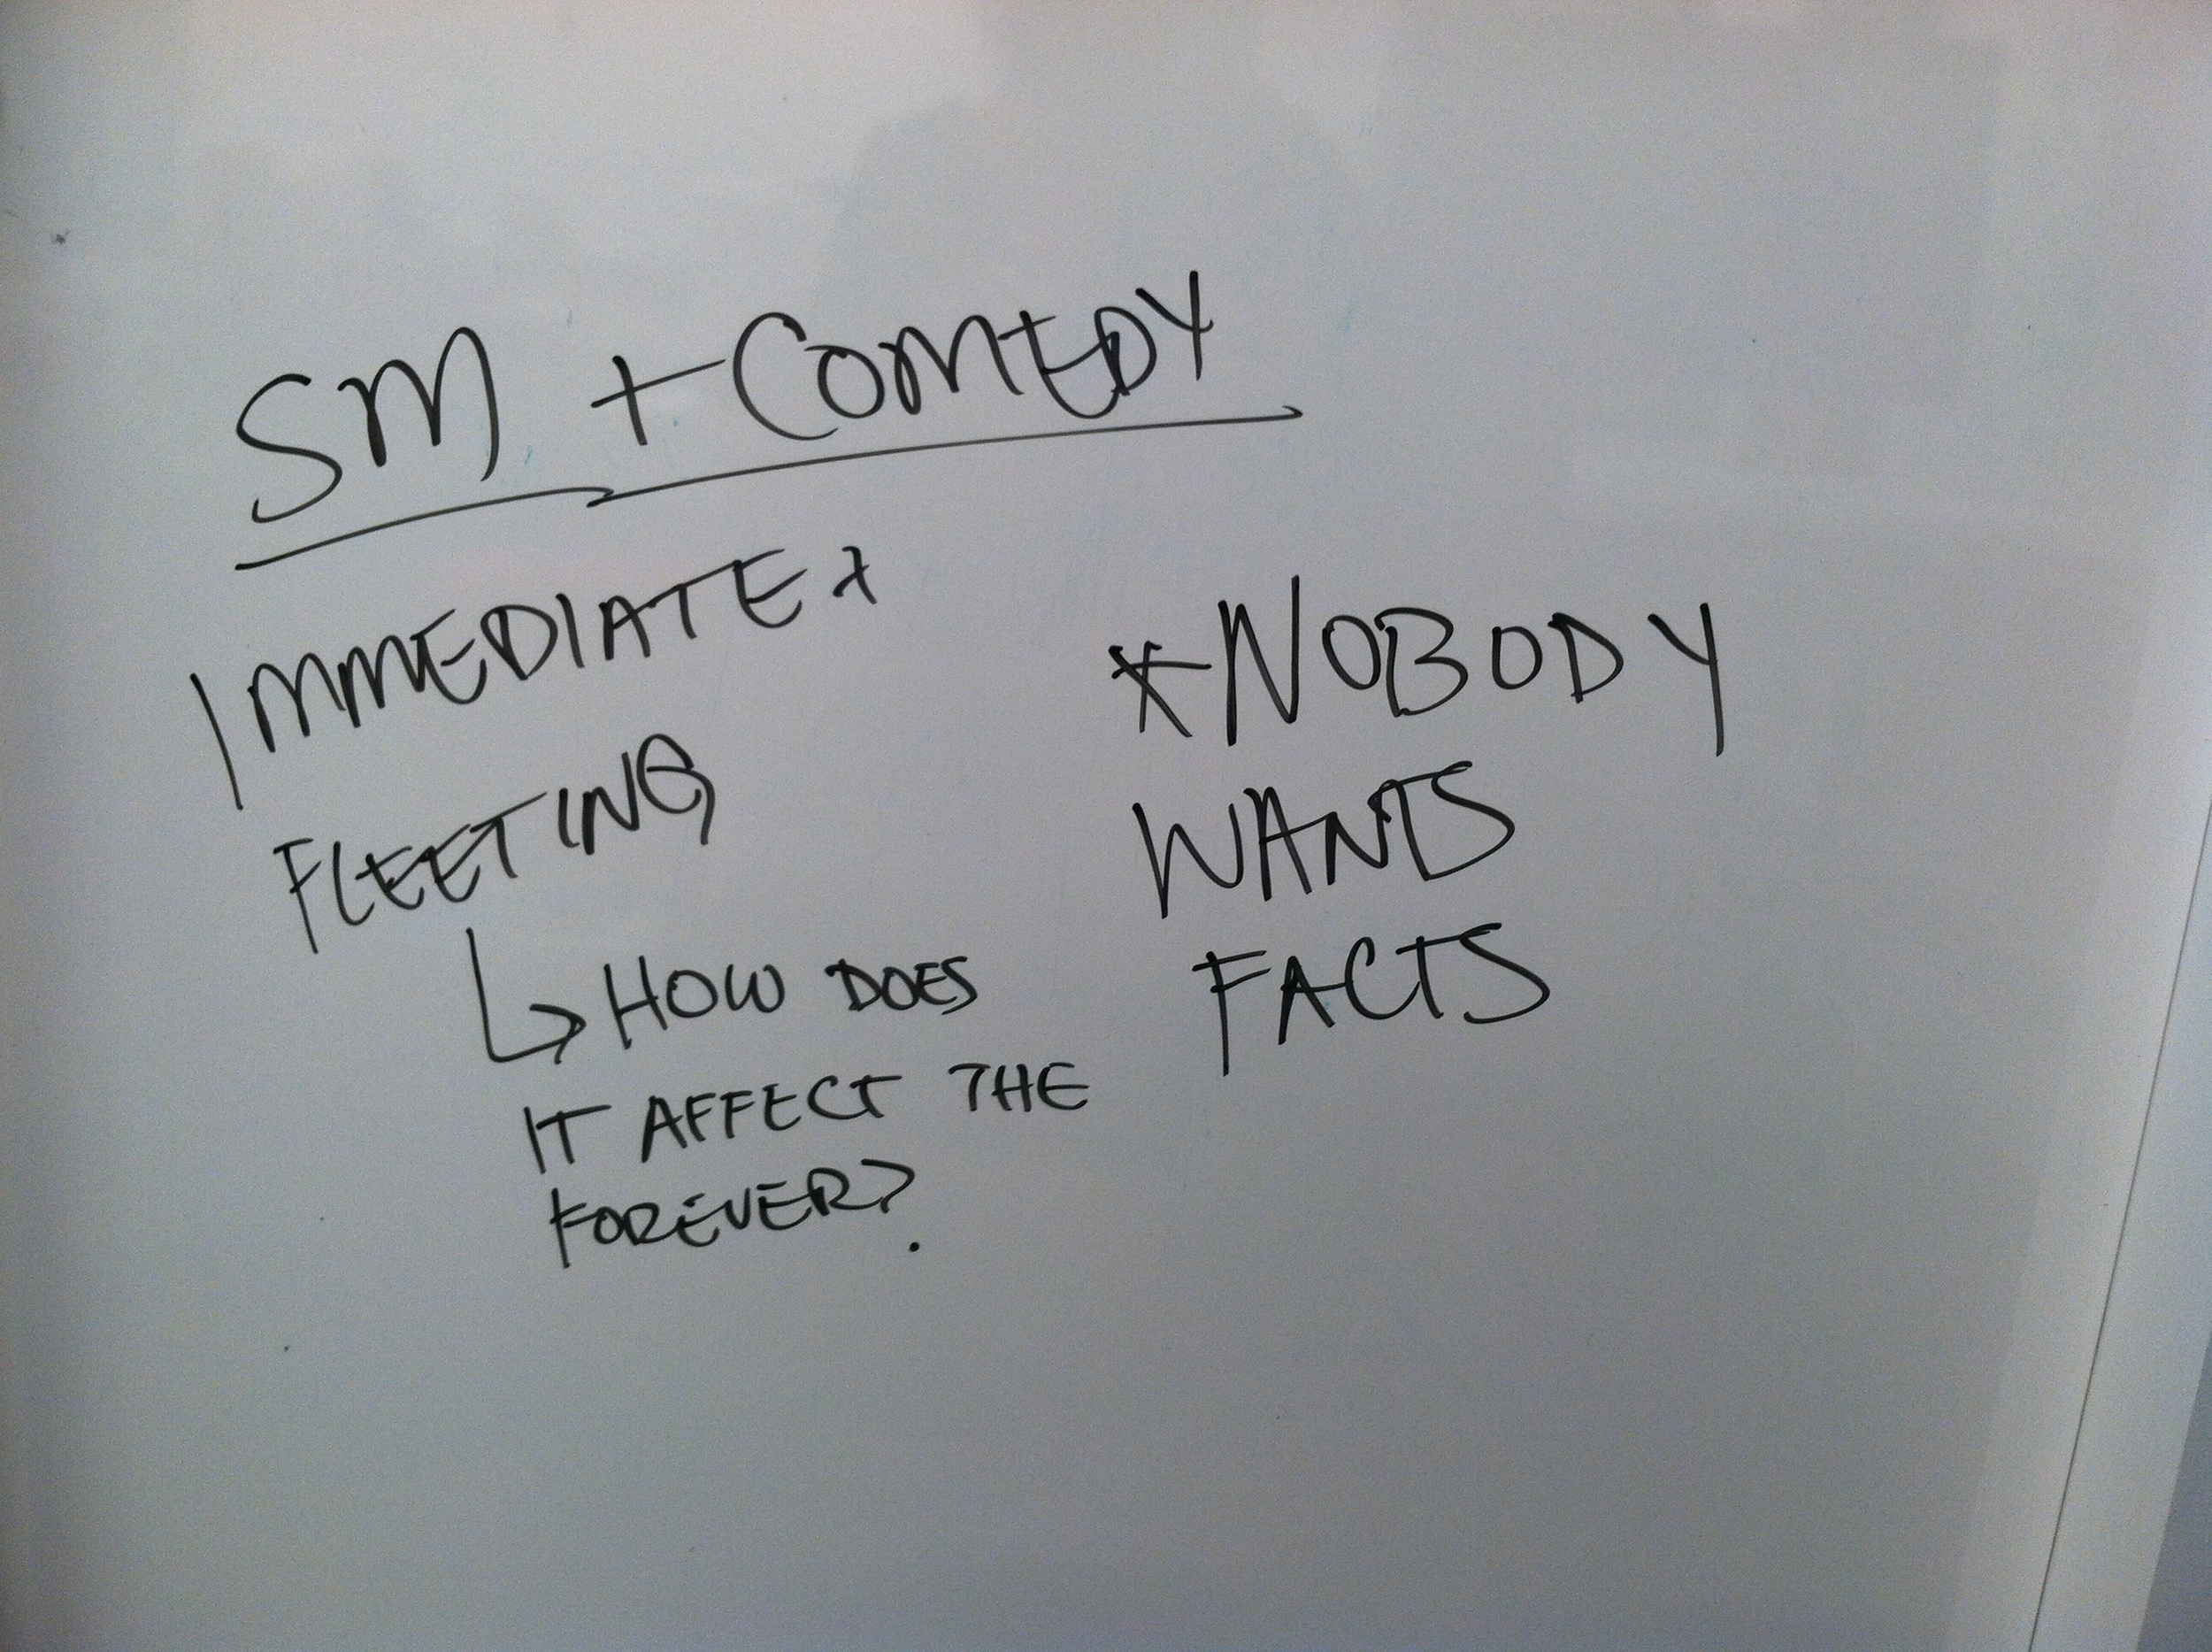 SM + COMEDY
IMMEDIATE +
FLEETING
↳ HOW DOES
IT AFFECT THE
FOREVER?
* NOBODY
WANTS
FACTS